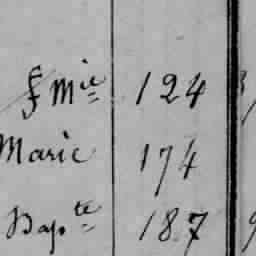 f Mie 124
Marie 174
Bapte 187